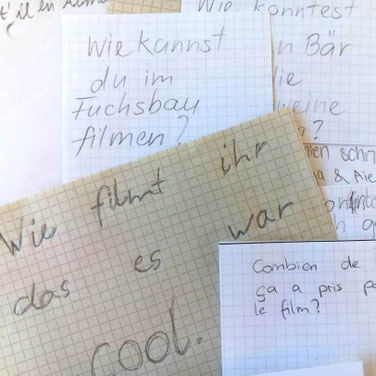 Wie konntest
n Bär
die
weine
n?
Wie kannst
du im
Fuchsbau
filmen?
Wie filmt ihr
das es war
cool.
Combien de
ça a pris
le film?